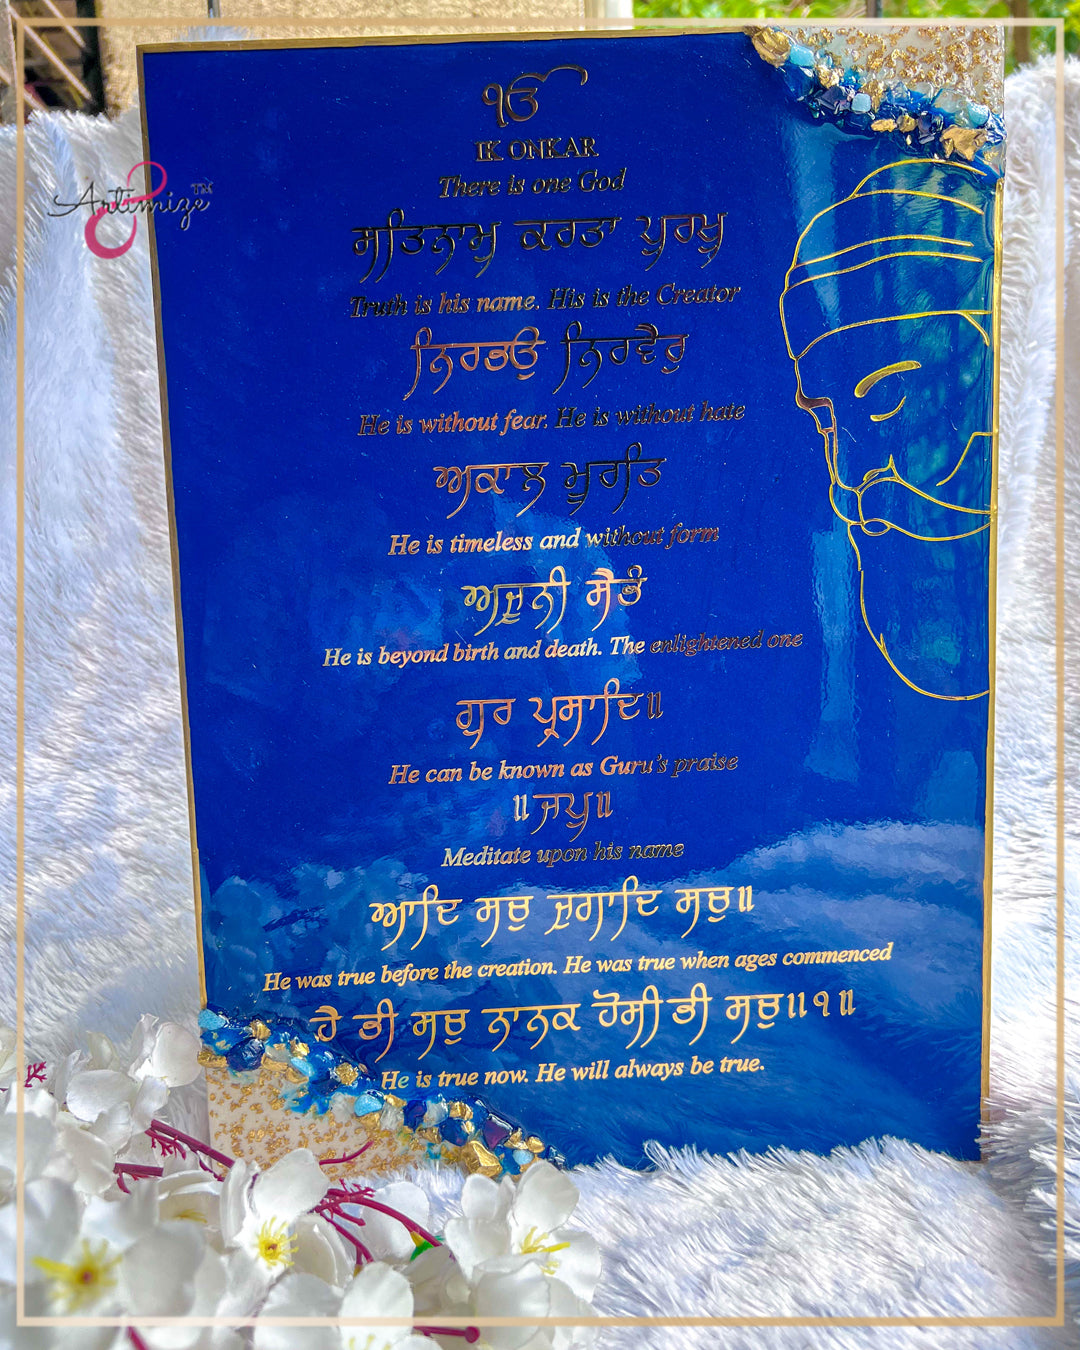 Artimize™
ੴ
IK ONKAR
There is one God
ਸਤਿਨਾਮੁ ਕਰਤਾ ਪੁਰਖੁ
Truth is his name. His is the Creator
ਨਿਰਭਉ ਨਿਰਵੈਰੁ
He is without fear. He is without hate
ਅਕਾਲ ਮੂਰਤਿ
He is timeless and without form
ਅਜੂਨੀ ਸੈਭੰ
He is beyond birth and death. The enlightened one
ਗੁਰ ਪ੍ਰਸਾਦਿ॥
He can be known as Guru's praise
॥ਜਪੁ॥
Meditate upon his name
ਆਦਿ ਸਚੁ ਜੁਗਾਦਿ ਸਚੁ॥
He was true before the creation. He was true when ages commenced
ਹੈ ਭੀ ਸਚੁ ਨਾਨਕ ਹੋਸੀ ਭੀ ਸਚੁ॥੧॥
He is true now. He will always be true.